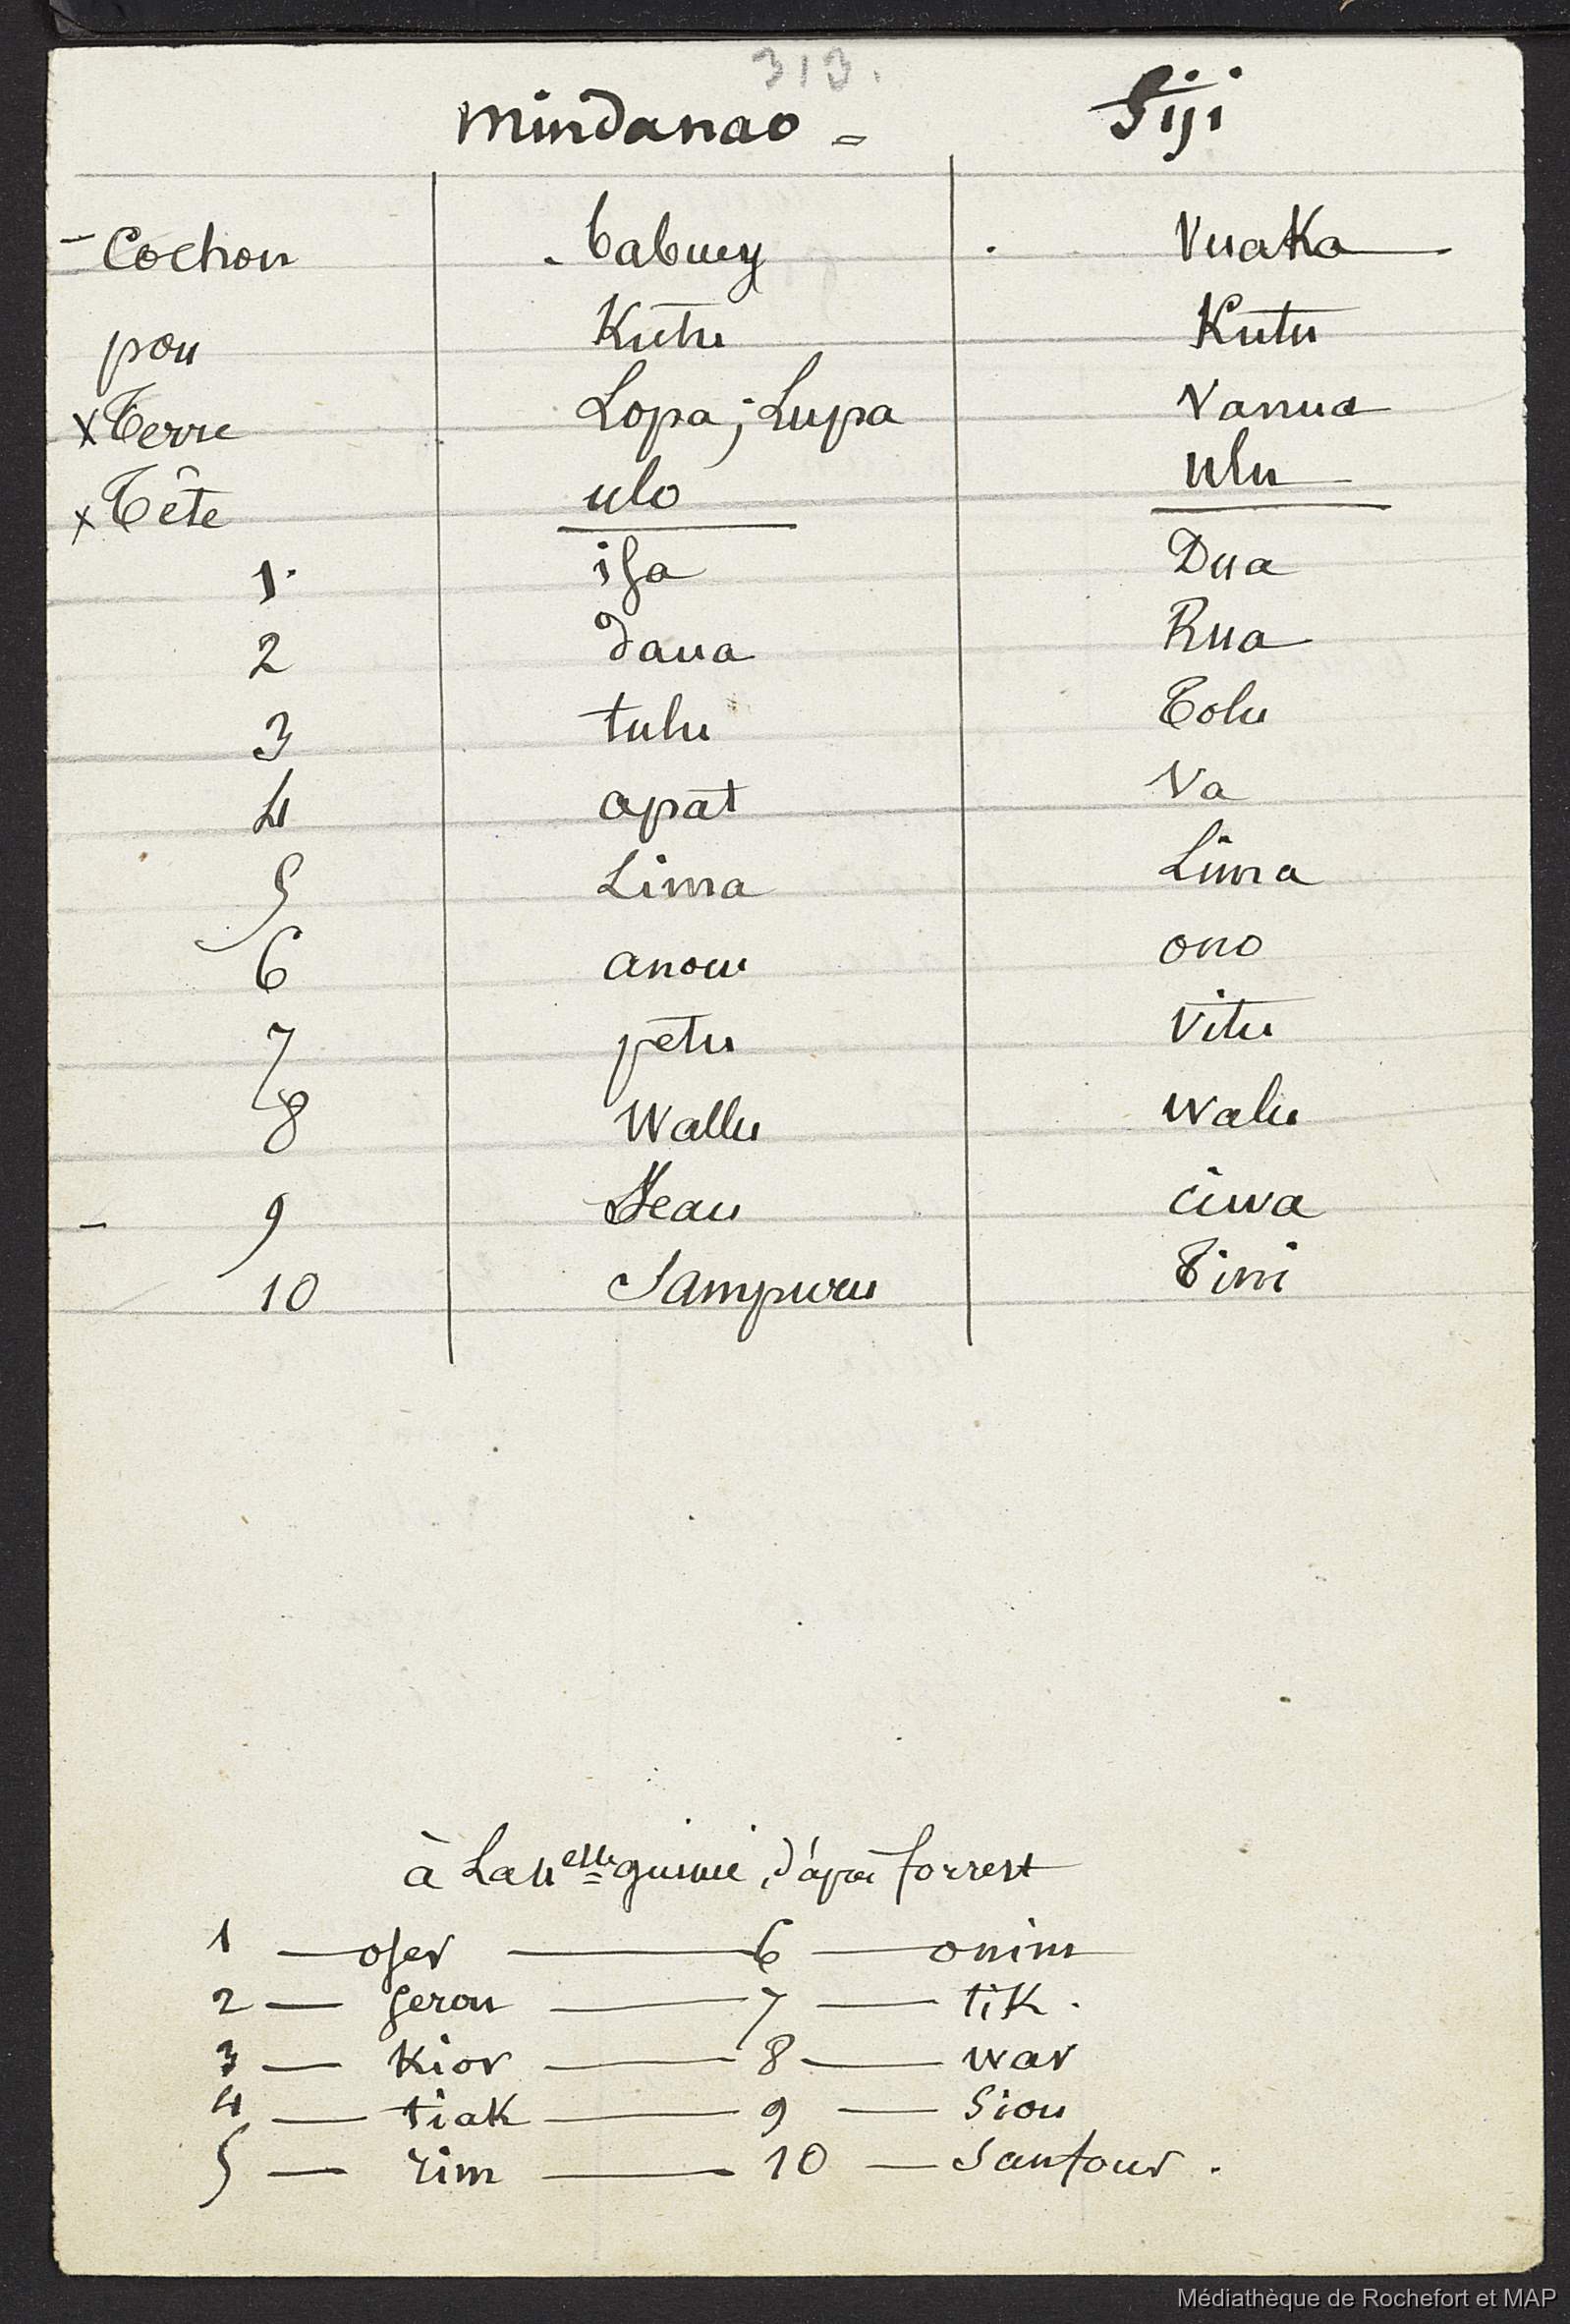 313.
Mindanao = Fiji
- Cochon - babuey . Vuaka
pou Kutu Kutu
x Terre Lopa ; Lupa Vanua
x Tête ulo ulu
1. isa Dua
2 daua Rua
3 tulu Tolu
4 apat Va
5 Lima Lima
6 anom ono
7 petu Vitu
8 Wallu walu
- 9 Seau ciwa
10 Sampuru Tini
à La nelle guinée, d'après forrest
1 — oser — 6 — onim
2 — serou — 7 — tiK.
3 — Kior — 8 — war
4 — tiak — 9 — Siou
5 — rim — 10 — Santour.
Médiathèque de Rochefort et MAP